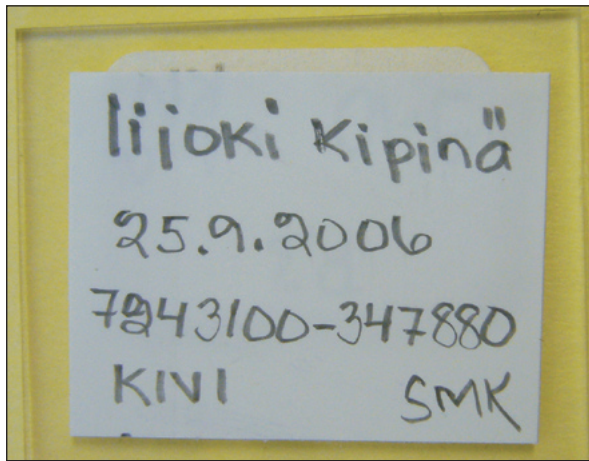 Iijoki Kipinä
25.9.2006
7243100-347880
KIVI SMK